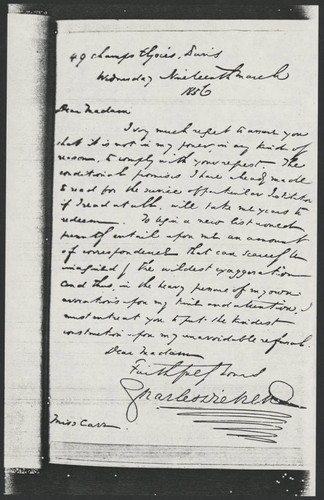 49 Champs Elysées, Paris
Wednesday Nineteenth March
1856
Dear Madam
I very much regret to assure you
that it is not in my power in any kind of
reason, to comply with your request. The
conditional promises I have already made
to read for the service of particular Institutions
if I read at all, will take me years to
redeem. To begin a new list would
entail upon me an amount
of correspondence that can scarcely be
imagined by the wildest exaggeration
And this, in the heavy pressure of my own
avocations upon my time and attention, I
must entreat you to put the kindest
construction upon my unavoidable refusal.
Dear Madam
Faithfully Yours
Charles Dickens
Miss Carr